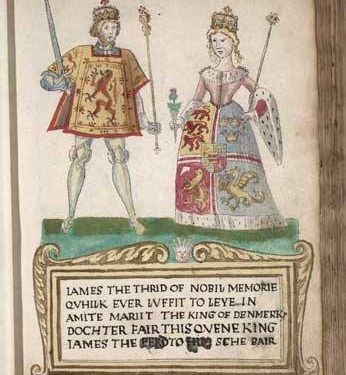 IAMES THE THRID OF NOBIL MEMORIE
QVHILK EVER LVFFIT TO LEVE IN
AMITE MARIIT THE KING OF DENMERK
DOCHTER FAIR THIS QVENE KING
IAMES THE FERD TO HIM SCHE BAIR